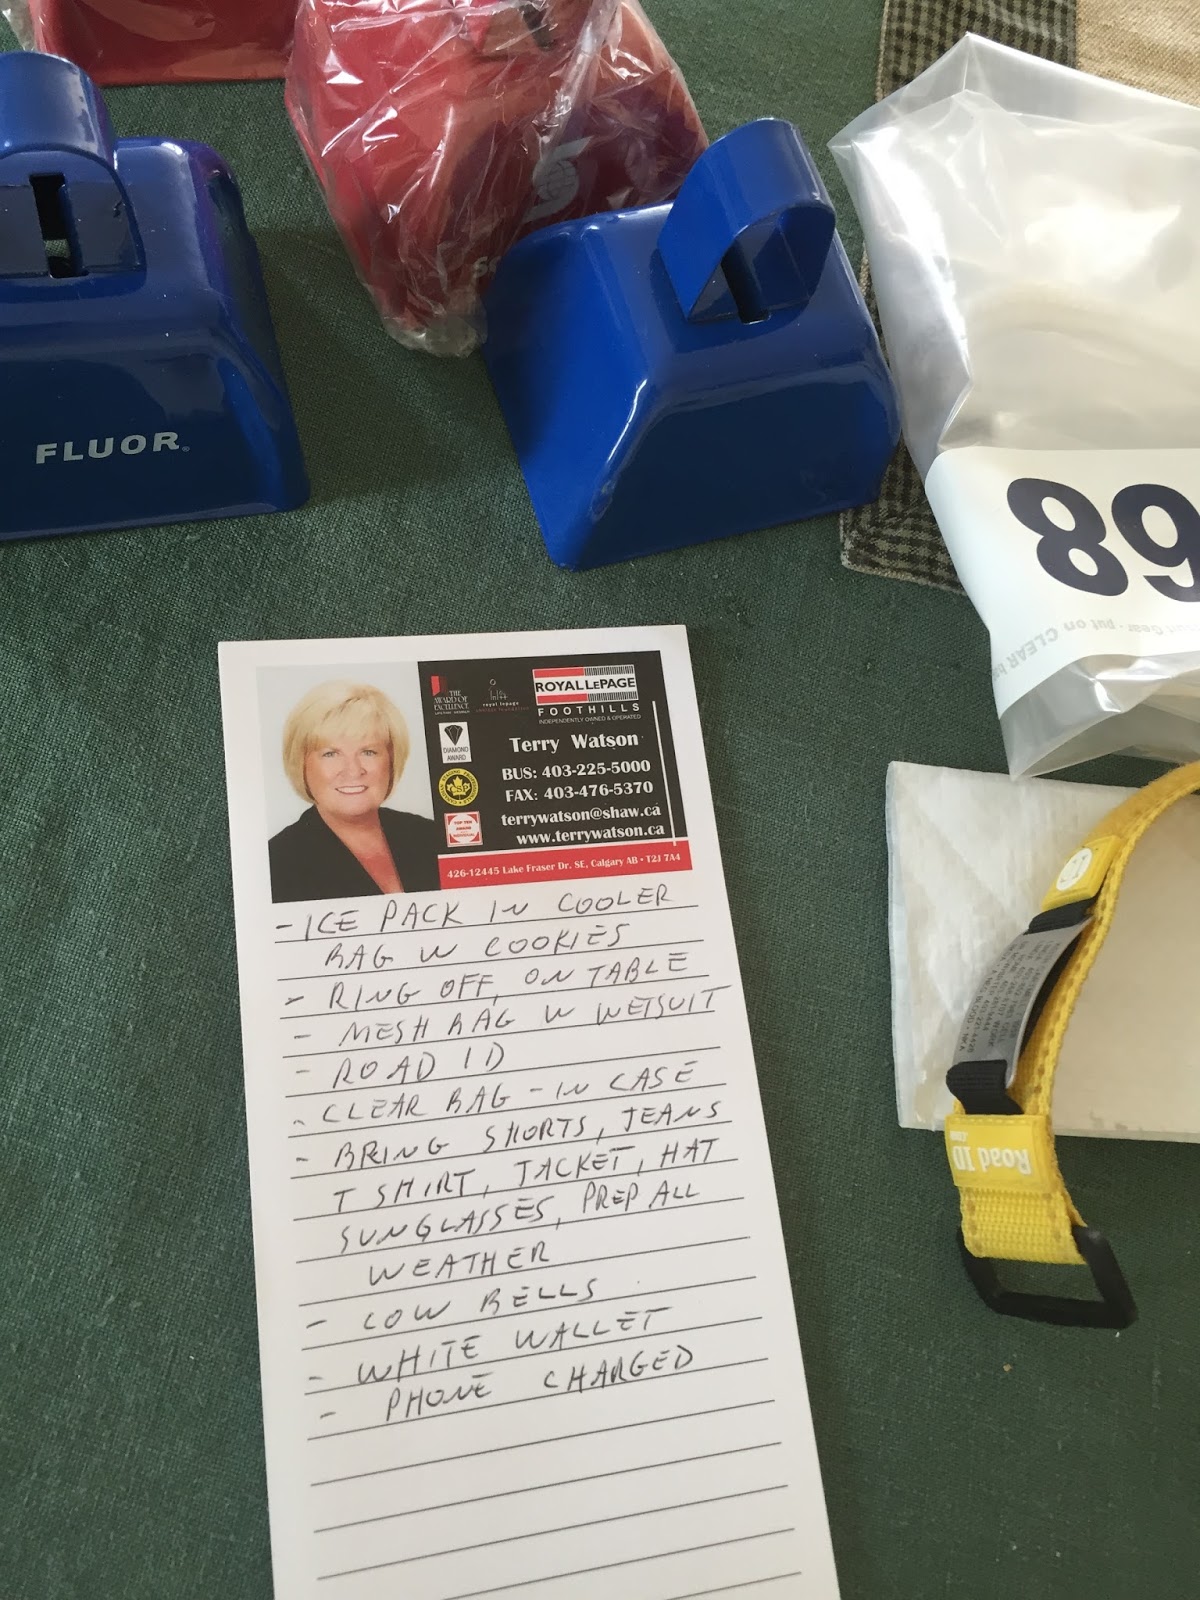 FLUOR®
68
CLEAR
THE
AWARD OF
EXCELLENCE
royal lepage
ROYAL LEPAGE
FOOTHILLS
INDEPENDENTLY OWNED & OPERATED
DIAMOND
AWARD
TOP TEN
AWARD
INDIVIDUAL
Terry Watson
BUS: 403-225-5000
FAX: 403-476-5370
terrywatson@shaw.ca
www.terrywatson.ca
426-12445 Lake Fraser Dr. SE, Calgary AB • T2J 7A4
- ICE PACK IN COOLER
BAG W COOKIES
- RING OFF, ON TABLE
- MESH BAG W WETSUIT
- ROAD ID
- CLEAR BAG - IN CASE
- BRING SHORTS, JEANS
T SHIRT, JACKET, HAT
SUNGLASSES, PREP ALL
WEATHER
- COW BELLS
- WHITE WALLET
- PHONE CHARGED
Road ID
.com